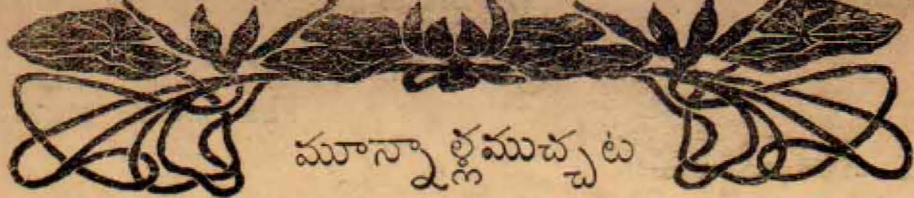 మూన్నాళ్లముచ్చట